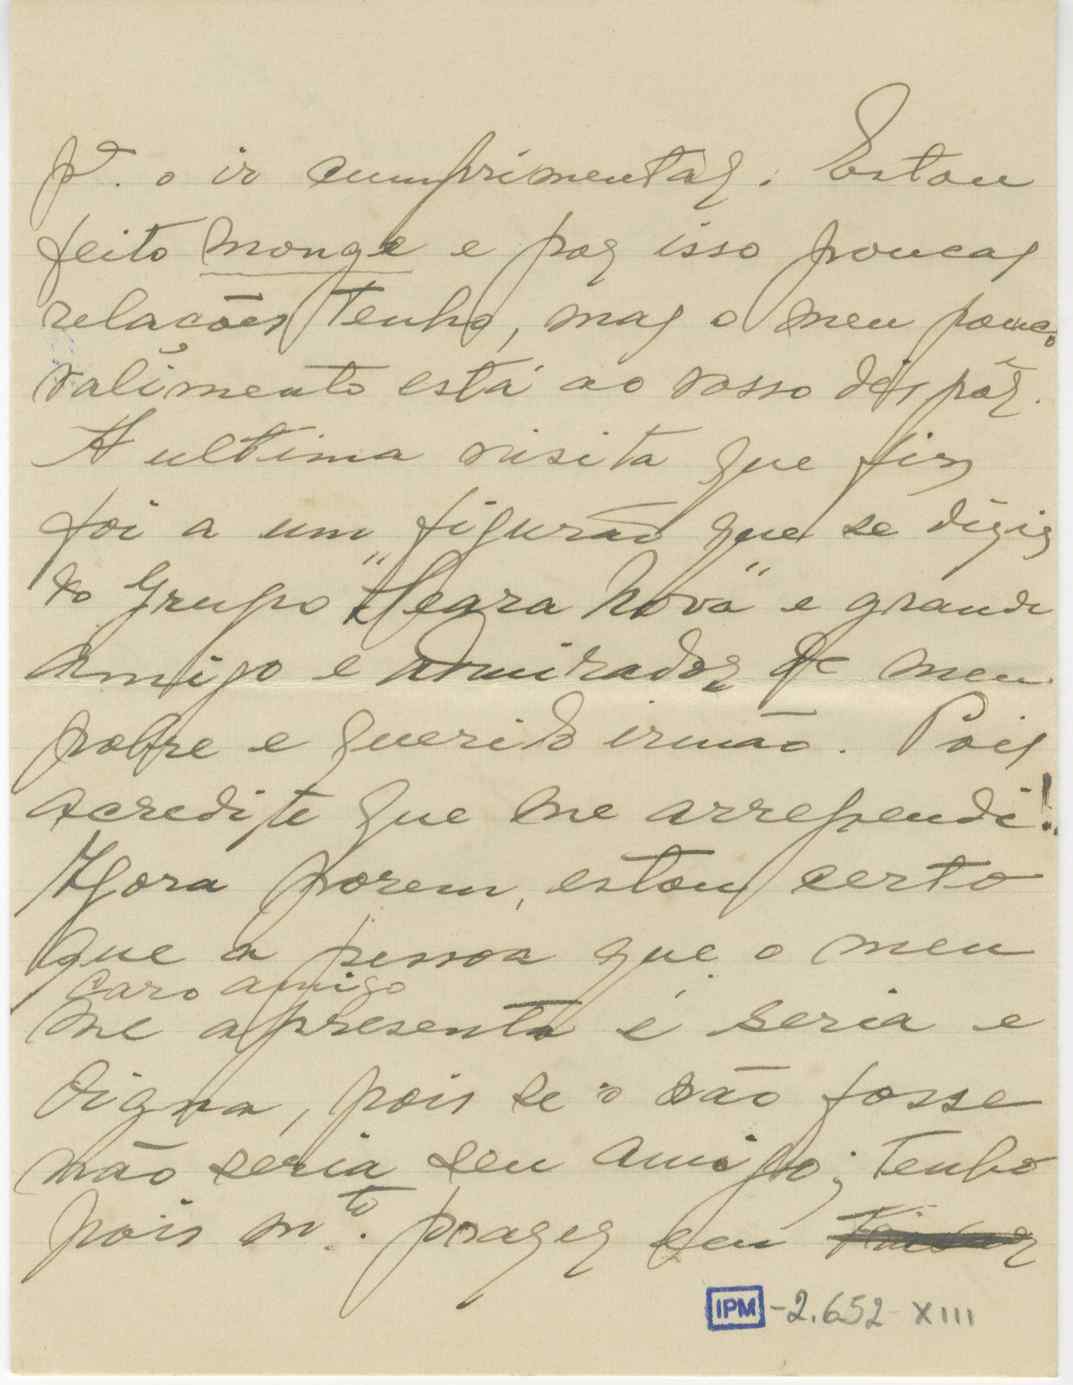 pª. o ir cumprimentar. Estou
feito monge e por isso poucas
relacões tenho, mas o meu pouco
valimento está ao vosso dispôr.
A ultima visita que fiz
foi a um figurão que se dizia
do Grupo "Seara Nova" e grande
amigo e admirador de meu
pobre e querido irmão. Pois
acredite que me arrependi!
Agora porem, estou certo
que a pessoa que o meu
caro amigo
me apresenta é seria e
digna, pois se o não fosse
não seria seu amigo; tenho
pois mᵗᵒ. prazer em
IPM - 2.652 XIII